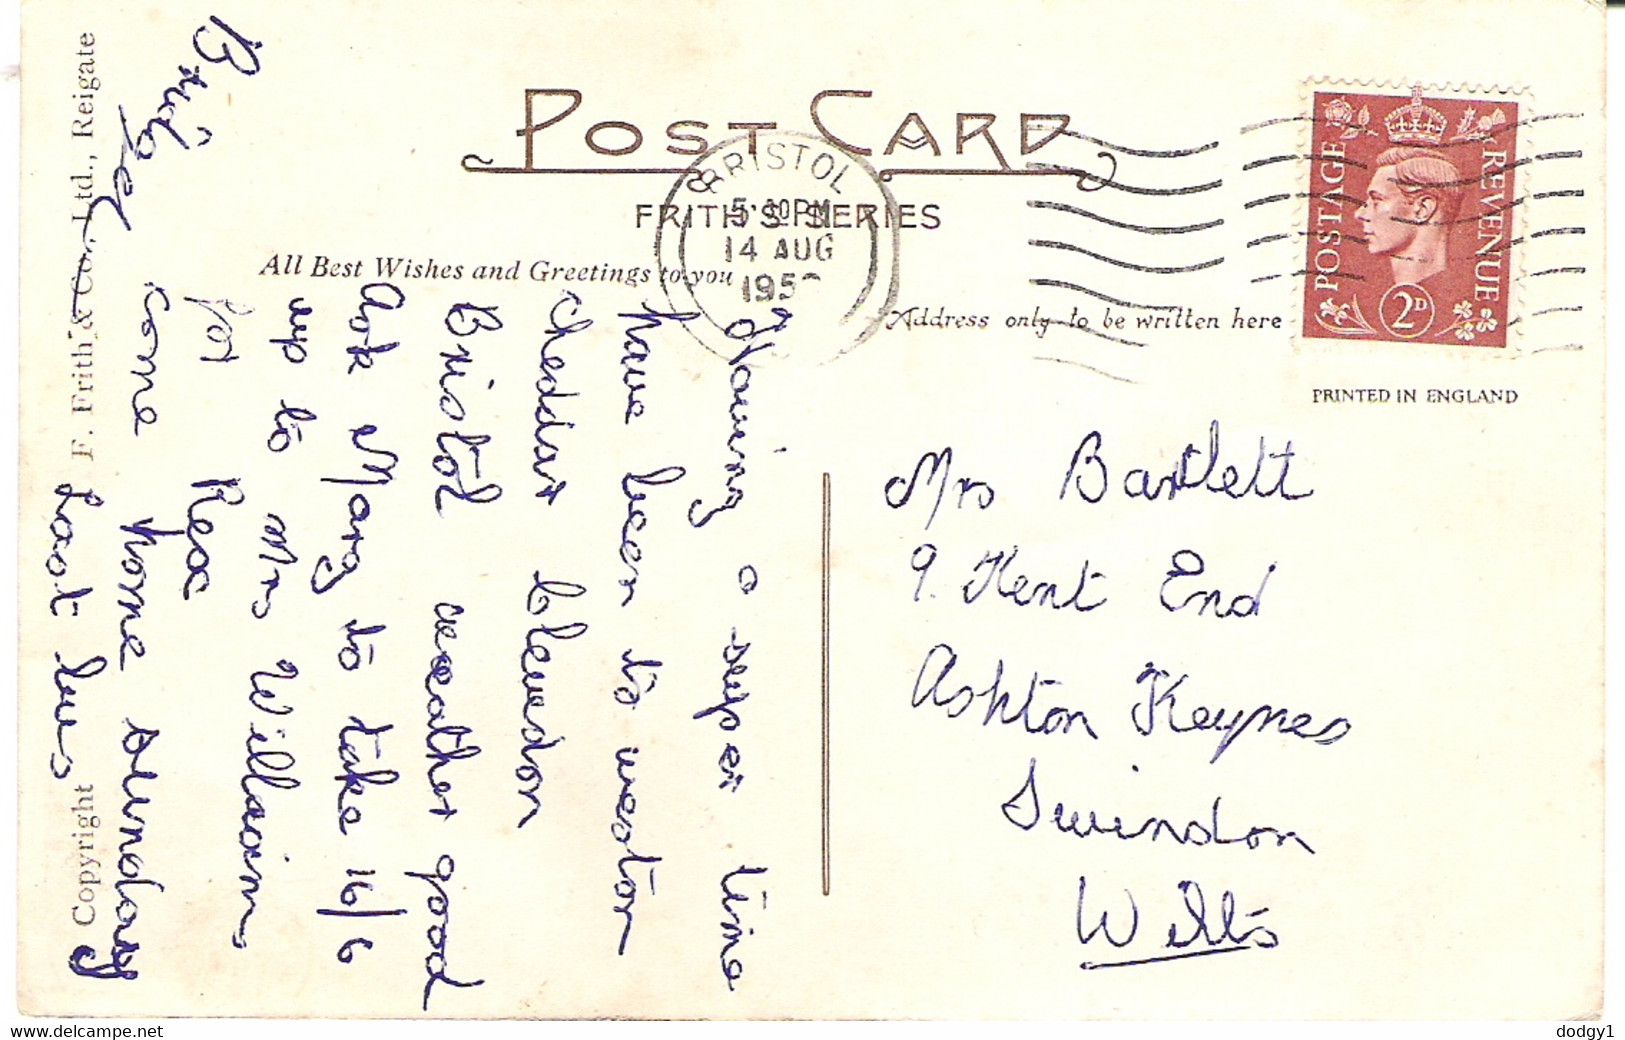 POST CARD
FRITH'S SERIES
BRISTOL
PM
14 AUG
195
POSTAGE
REVENUE
2D
All Best Wishes and Greetings to you
Address only to be written here
PRINTED IN ENGLAND
Having a super time
have been to weston
cheddar clevedon
Bristol weather good
Ask Marg to take 16/6
up to Mrs Williams
for Rex
come home Sunday
Last bus
Bridget
Mrs Bartlett
9. Kent End
Ashton Keynes
Swindon
Wilts
Copyright F. Frith & Co., Ltd., Reigate
dodgy1